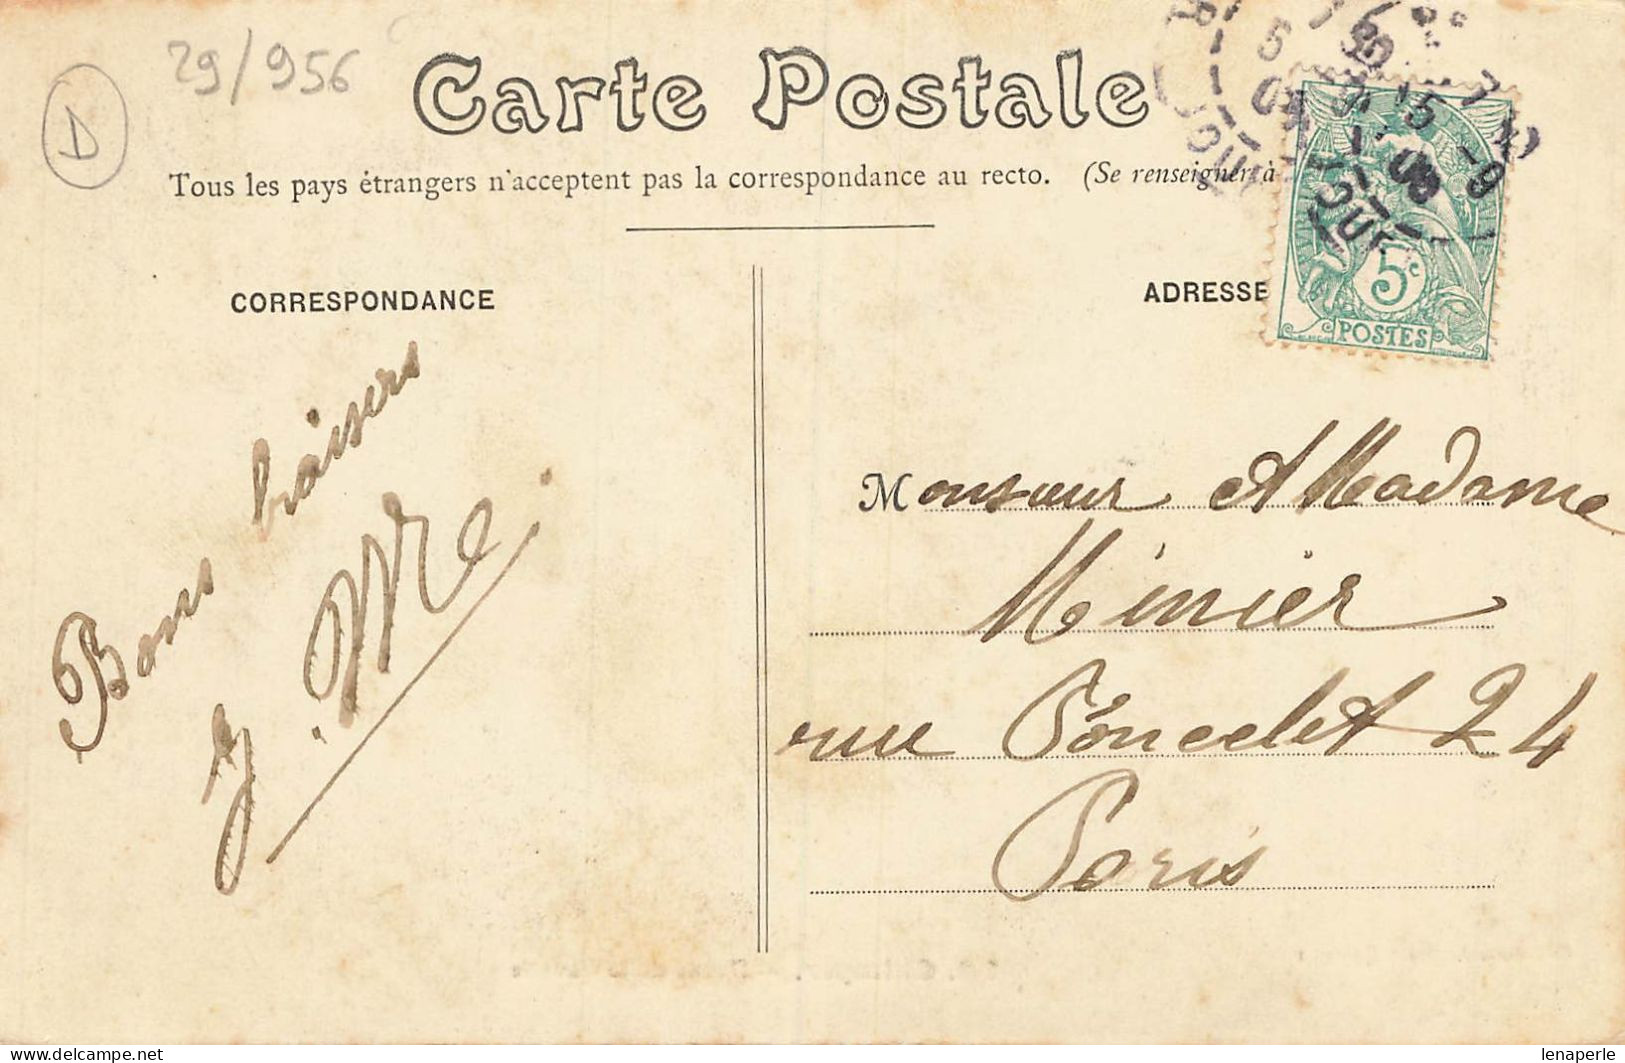 29/956
D
Carte Postale
Tous les pays étrangers n'acceptent pas la correspondance au recto. (Se renseigner à
CORRESPONDANCE
ADRESSE
5c
POSTES
Bons baisers
Monsieur et Madame
Minier
rue Poncelet 24
Paris
lenaperle